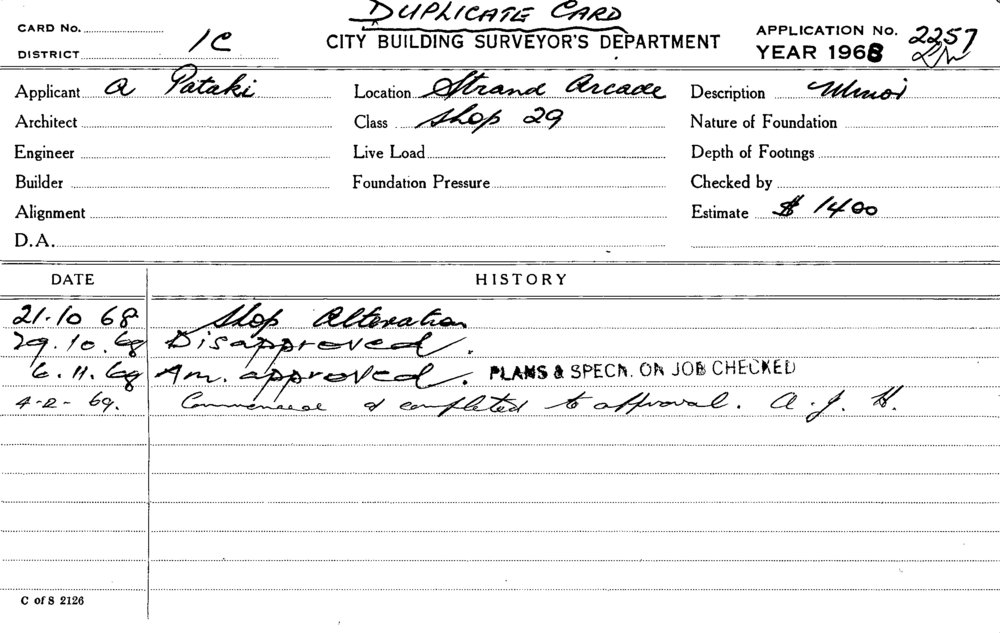 DUPLICATE CARD
CARD No. 
CITY BUILDING SURVEYOR'S DEPARTMENT
APPLICATION No. 2257
DISTRICT 1C
YEAR 1968
Applicant A Pataki Location Strand Arcade Description Minor
Architect Class Shop 29 Nature of Foundation
Engineer Live Load Depth of Footings
Builder Foundation Pressure Checked by
Alignment Estimate $ 1400
D.A.
DATE HISTORY
21.10 68 Shop Alteration
29.10.68 Disapproved.
6.11.68 Am. approved. PLANS & SPECN. ON JOB CHECKED
4-2-69. Commenced & completed to approval. A.J.H.
C of S 2126